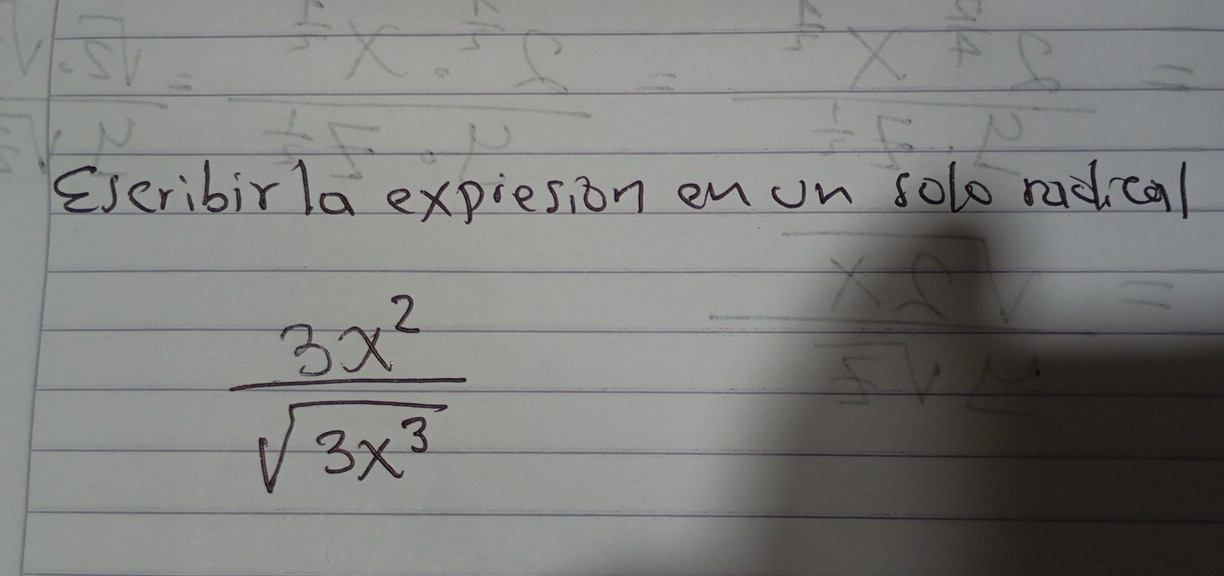 Escribir la expresión en un solo radical
3x²
√3x³